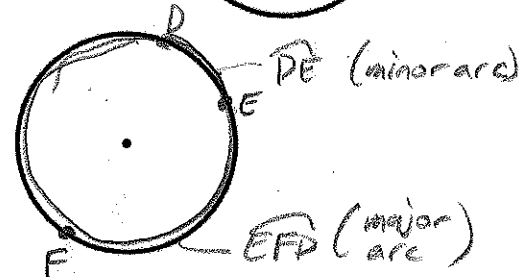 D
DE (minor arc)
E
EFD (major arc)
F